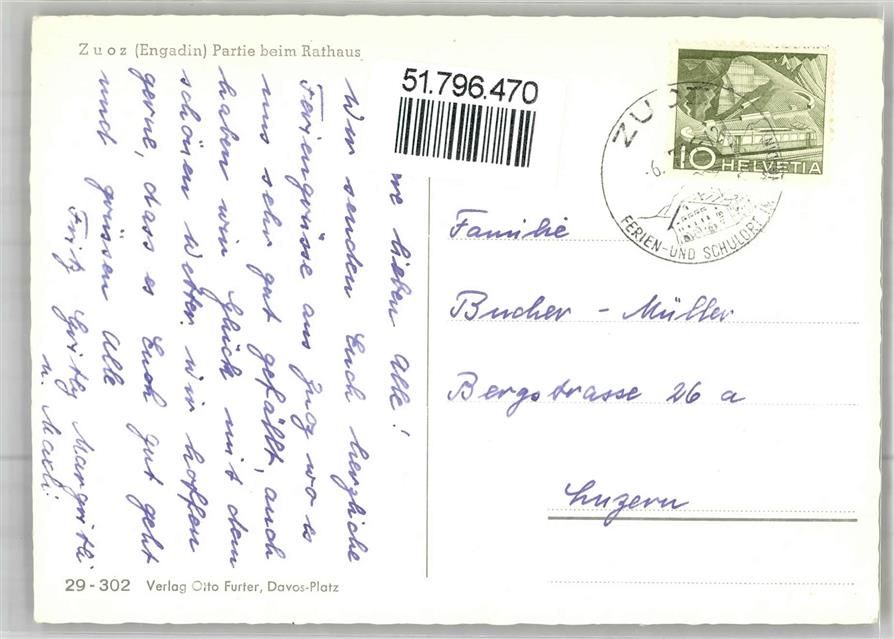 Zuoz (Engadin) Partie beim Rathaus
51.796.470
lieben Alle!
Wir senden Euch herzliche
Feriengrüsse aus Zuoz wo es
uns sehr gut gefällt, auch
haben wir Glück mit dem
schönen Wetter. Wir hoffen
gerne, dass es Euch gut geht
und grüssen Alle
Fritz Gritly Margritli
u. Maxli.
ZUOZ
-6.
FERIEN-UND SCHULORT IM
10 HELVETIA
Familie
Bucher - Müller
Bergstrasse 26 a
Luzern
29-302 Verlag Otto Furter, Davos-Platz